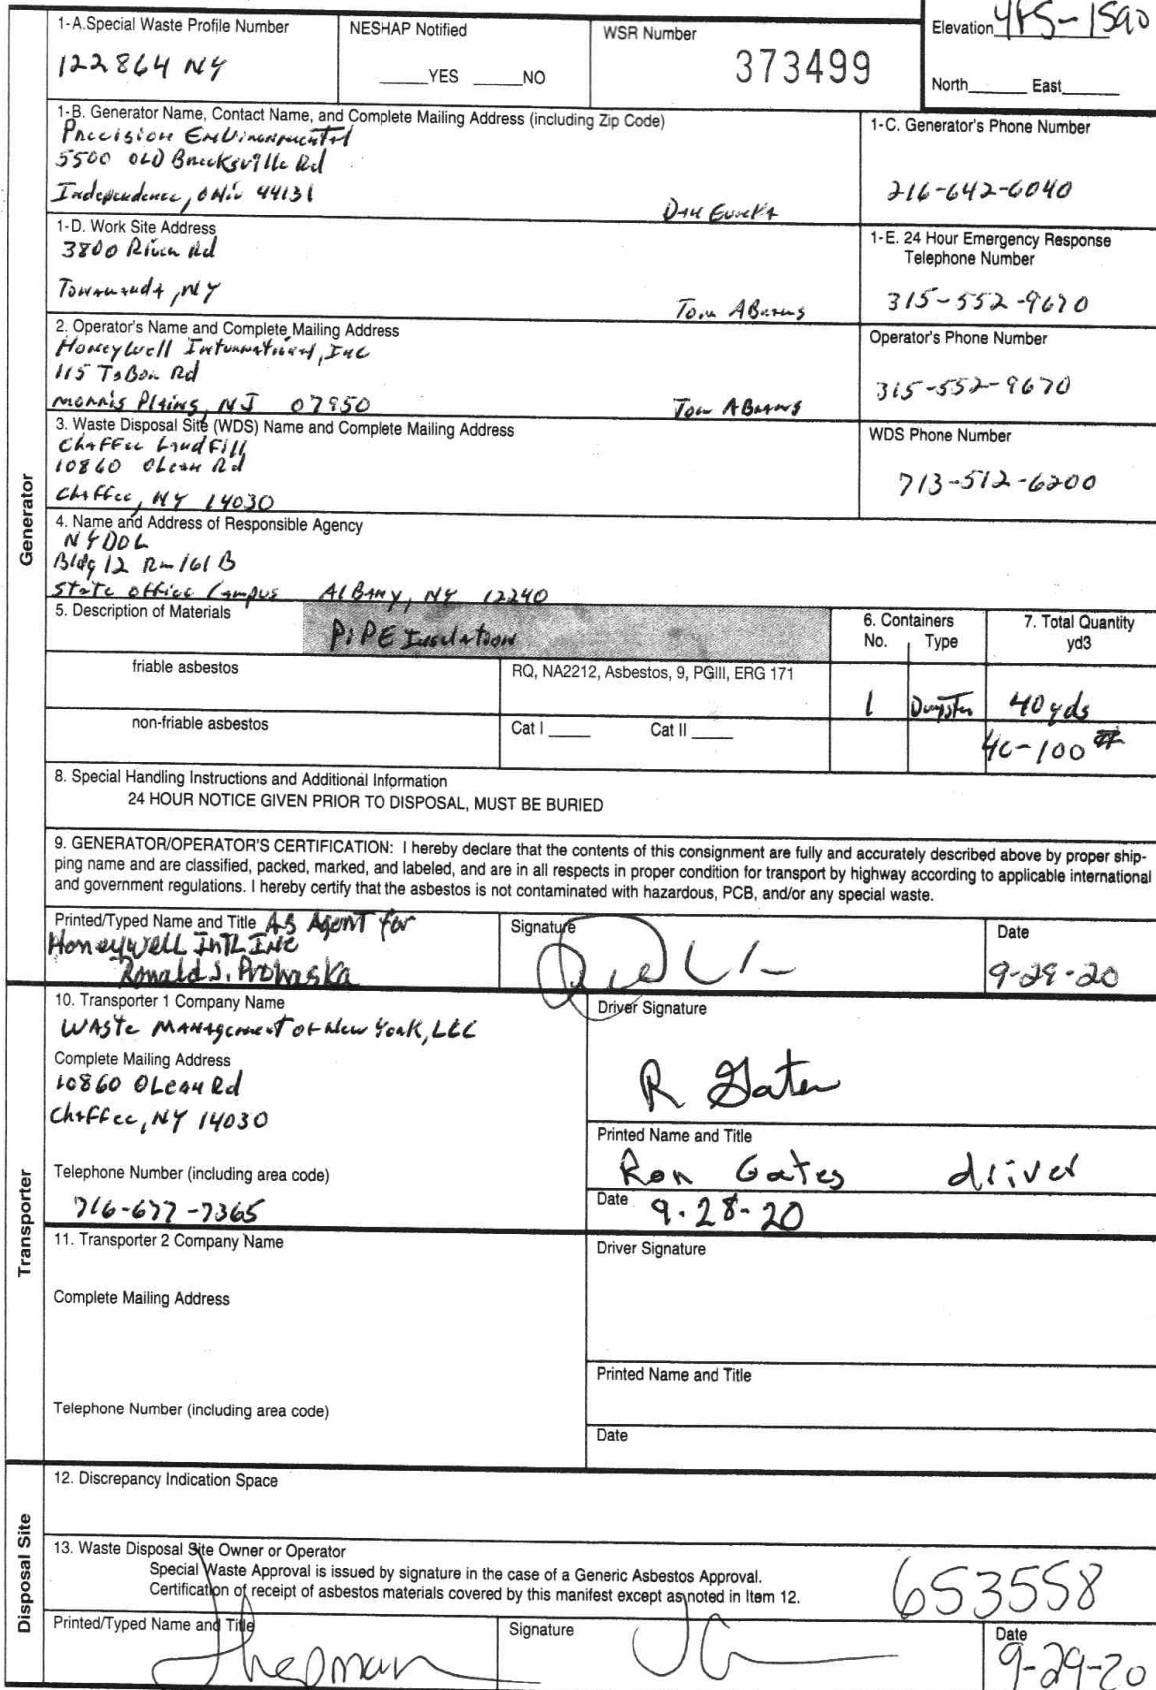 1-A.Special Waste Profile Number
122864 NY
NESHAP Notified
_____YES _____NO
WSR Number
373499
Elevation
North______ East______
Generator
1-B. Generator Name, Contact Name, and Complete Mailing Address (including Zip Code)
Precision Environmental
5500 OLD Brecksville Rd
Independence, Ohio 44131
Dan Eureka
1-C. Generator's Phone Number
216-642-6040
1-D. Work Site Address
3800 River Rd
Tonawanda, NY
Tom Abrams
1-E. 24 Hour Emergency Response
Telephone Number
315-552-9670
2. Operator's Name and Complete Mailing Address
Honeywell International, Inc
115 Tabor Rd
Morris Plains, NJ 07950
Tom Abrams
Operator's Phone Number
315-552-9670
3. Waste Disposal Site (WDS) Name and Complete Mailing Address
Chaffee Landfill
10860 Olean Rd
Chaffee, NY 14030
WDS Phone Number
713-512-6200
4. Name and Address of Responsible Agency
NYDOL
Bldg 12 Rm 161 B
State Office Campus Albany, NY 12240
5. Description of Materials
PiPE Insulation
6. Containers
No. Type
7. Total Quantity
yd3
friable asbestos
RQ, NA2212, Asbestos, 9, PGIII, ERG 171
1 Dumpster 40 yds
non-friable asbestos
Cat I _____ Cat II _____
40-100 #
8. Special Handling Instructions and Additional Information
24 HOUR NOTICE GIVEN PRIOR TO DISPOSAL, MUST BE BURIED
9. GENERATOR/OPERATOR'S CERTIFICATION: I hereby declare that the contents of this consignment are fully and accurately described above by proper ship-
ping name and are classified, packed, marked, and labeled, and are in all respects in proper condition for transport by highway according to applicable international
and government regulations. I hereby certify that the asbestos is not contaminated with hazardous, PCB, and/or any special waste.
Printed/Typed Name and Title AS Agent for
Honeywell INTL INC
Ronald J. Prohaska
Signature
Date
9-29-20
Transporter
10. Transporter 1 Company Name
Waste Management of New York, LLC
Complete Mailing Address
10860 Olean Rd
Chaffee, NY 14030
Telephone Number (including area code)
716-677-7365
Driver Signature
R Gates
Printed Name and Title
Ron Gates driver
Date 9-28-20
11. Transporter 2 Company Name
Complete Mailing Address
Telephone Number (including area code)
Driver Signature
Printed Name and Title
Date
Disposal Site
12. Discrepancy Indication Space
13. Waste Disposal Site Owner or Operator
Special Waste Approval is issued by signature in the case of a Generic Asbestos Approval.
Certification of receipt of asbestos materials covered by this manifest except as noted in Item 12.
653558
Printed/Typed Name and Title
Signature
Date
9-29-20